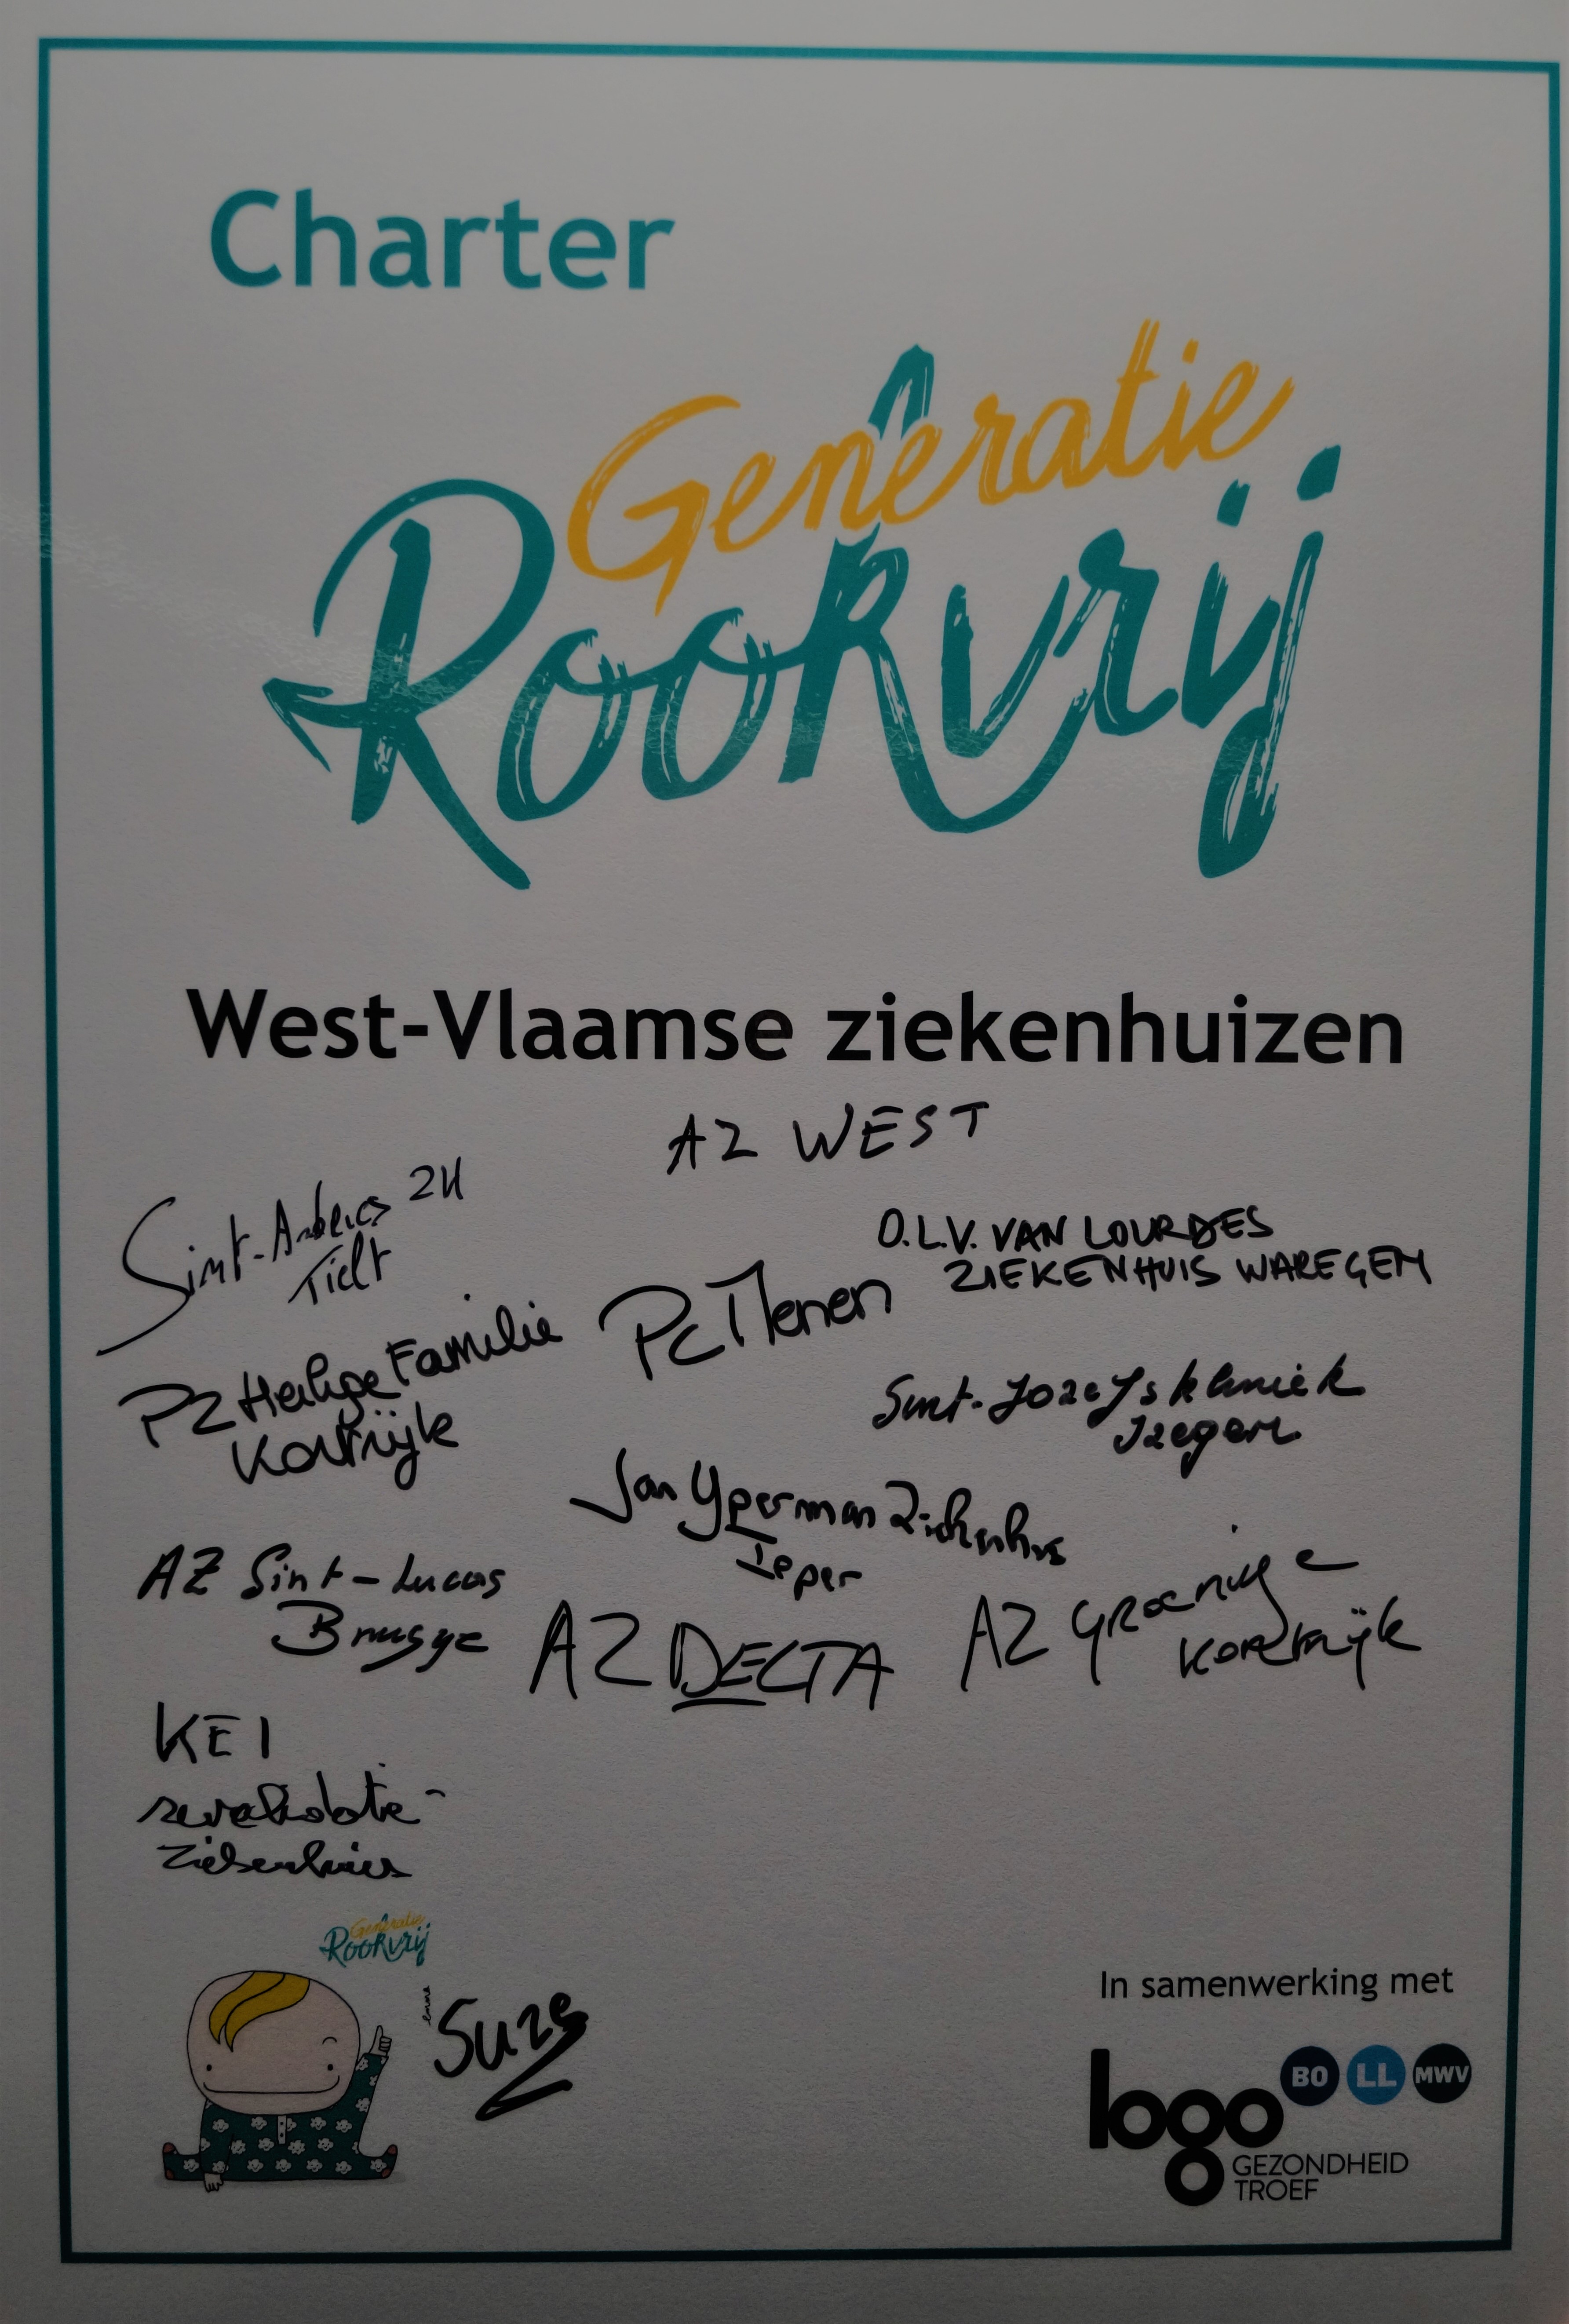 Charter
Generatie
Rookvrij
West-Vlaamse ziekenhuizen
AZ WEST
Sint-Andries ZH
Tielt
O.L.V. VAN LOURDES
ZIEKENHUIS WAREGEM
PZ Heilige Familie
Kortrijk
PC Menen
Sint-Jozefskliniek
Izegem
Jan Yperman Ziekenhuis
Ieper
AZ Sint-Lucas
Brugge
AZ DELTA
AZ Groeninge
Kortrijk
KEI
revalidatie-
ziekenhuis
Generatie
Rookvrij
Suze
In samenwerking met
logo
BO LL MWV
GEZONDHEID
TROEF